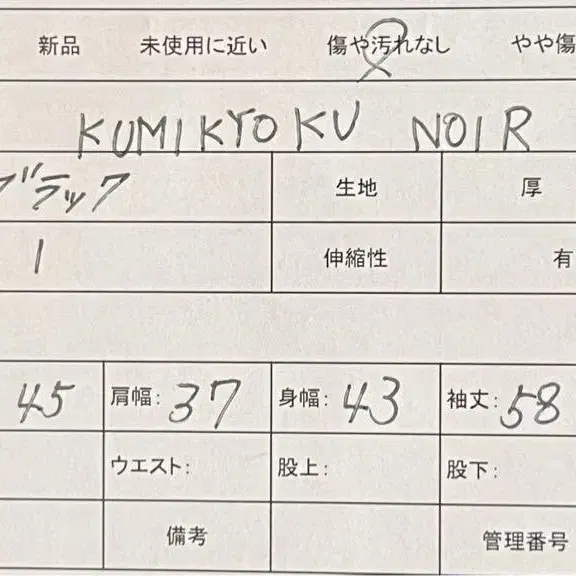 新品 未使用に近い 傷や汚れなし やや傷
KUMIKYOKU NOIR
ブラック 生地 厚
1 伸縮性 有
45 肩幅: 37 身幅: 43 袖丈: 58
ウエスト: 股上: 股下:
備考 管理番号